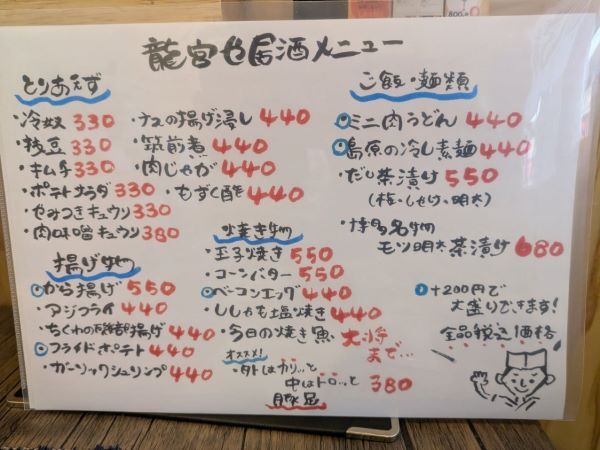 龍宮や居酒メニュー
とりあえず
・冷奴 330
・枝豆 330
・キムチ 330
・ポテトサラダ 330
・やみつきキュウリ 330
・肉味噌キュウリ 380
・ナスの揚げ浸し 440
・筑前煮 440
・肉じゃが 440
・もずく酢 440
揚げ物
から揚げ 550
・アジフライ 440
・ちくわの磯部揚げ 440
フライドポテト 440
・ガーリックシュリンプ 440
焼き物
・玉子焼き 550
・コーンバター 550
ベーコンエッグ 440
・ししゃも塩焼き 440
・今日の焼き魚 大将まで…
オススメ!
・外はカリッ…と
中はトロッ…と 380
豚足
ご飯・麺類
ミニ肉うどん 440
島原の冷し素麺 440
・だし茶漬け 550
(梅・しゃけ・明太)
・博多名物
モツ明太茶漬け 680
+200円で
大盛りできます!
全品税込価格